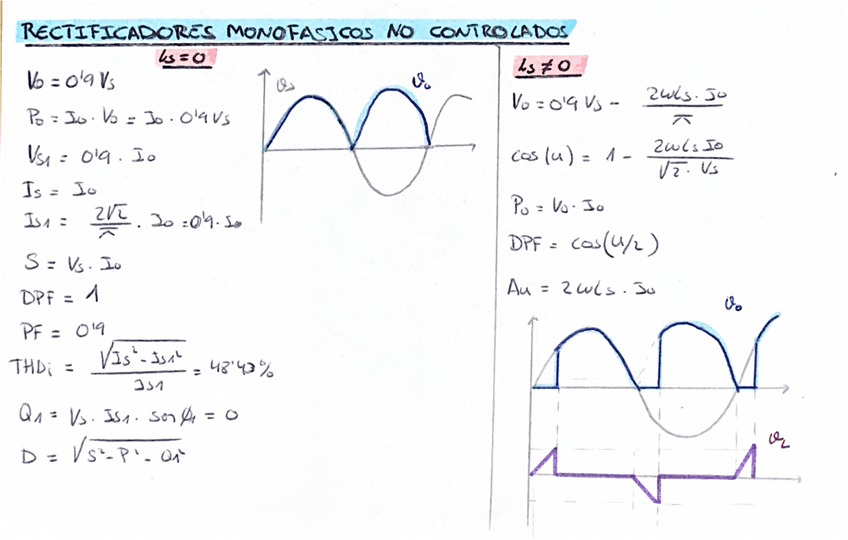 RECTIFICADORES MONOFASICOS NO CONTROLADOS
Ls=0
Vo = 0'9 Vs
Po = Io · Vo = Io · 0'9 Vs
Vs1 = 0'9 · Io
Is = Io
Is1 = 2√2/π · Io = 0'9 · Io
S = Vs · Io
DPF = 1
PF = 0'9
THDi = √(Is² - Is1²)/Is1 = 48'43%
Q1 = Vs · Is1 · sen ϕ1 = 0
D = √(S² - P² - Q1²)
vs
vo
Ls ≠ 0
Vo = 0'9 Vs - 2ωLs · Io/π
cos(u) = 1 - 2ωLs Io/(√2 · Vs)
Po = Vo · Io
DPF = cos(u/2)
Au = 2ωLs · Io
vo
vL